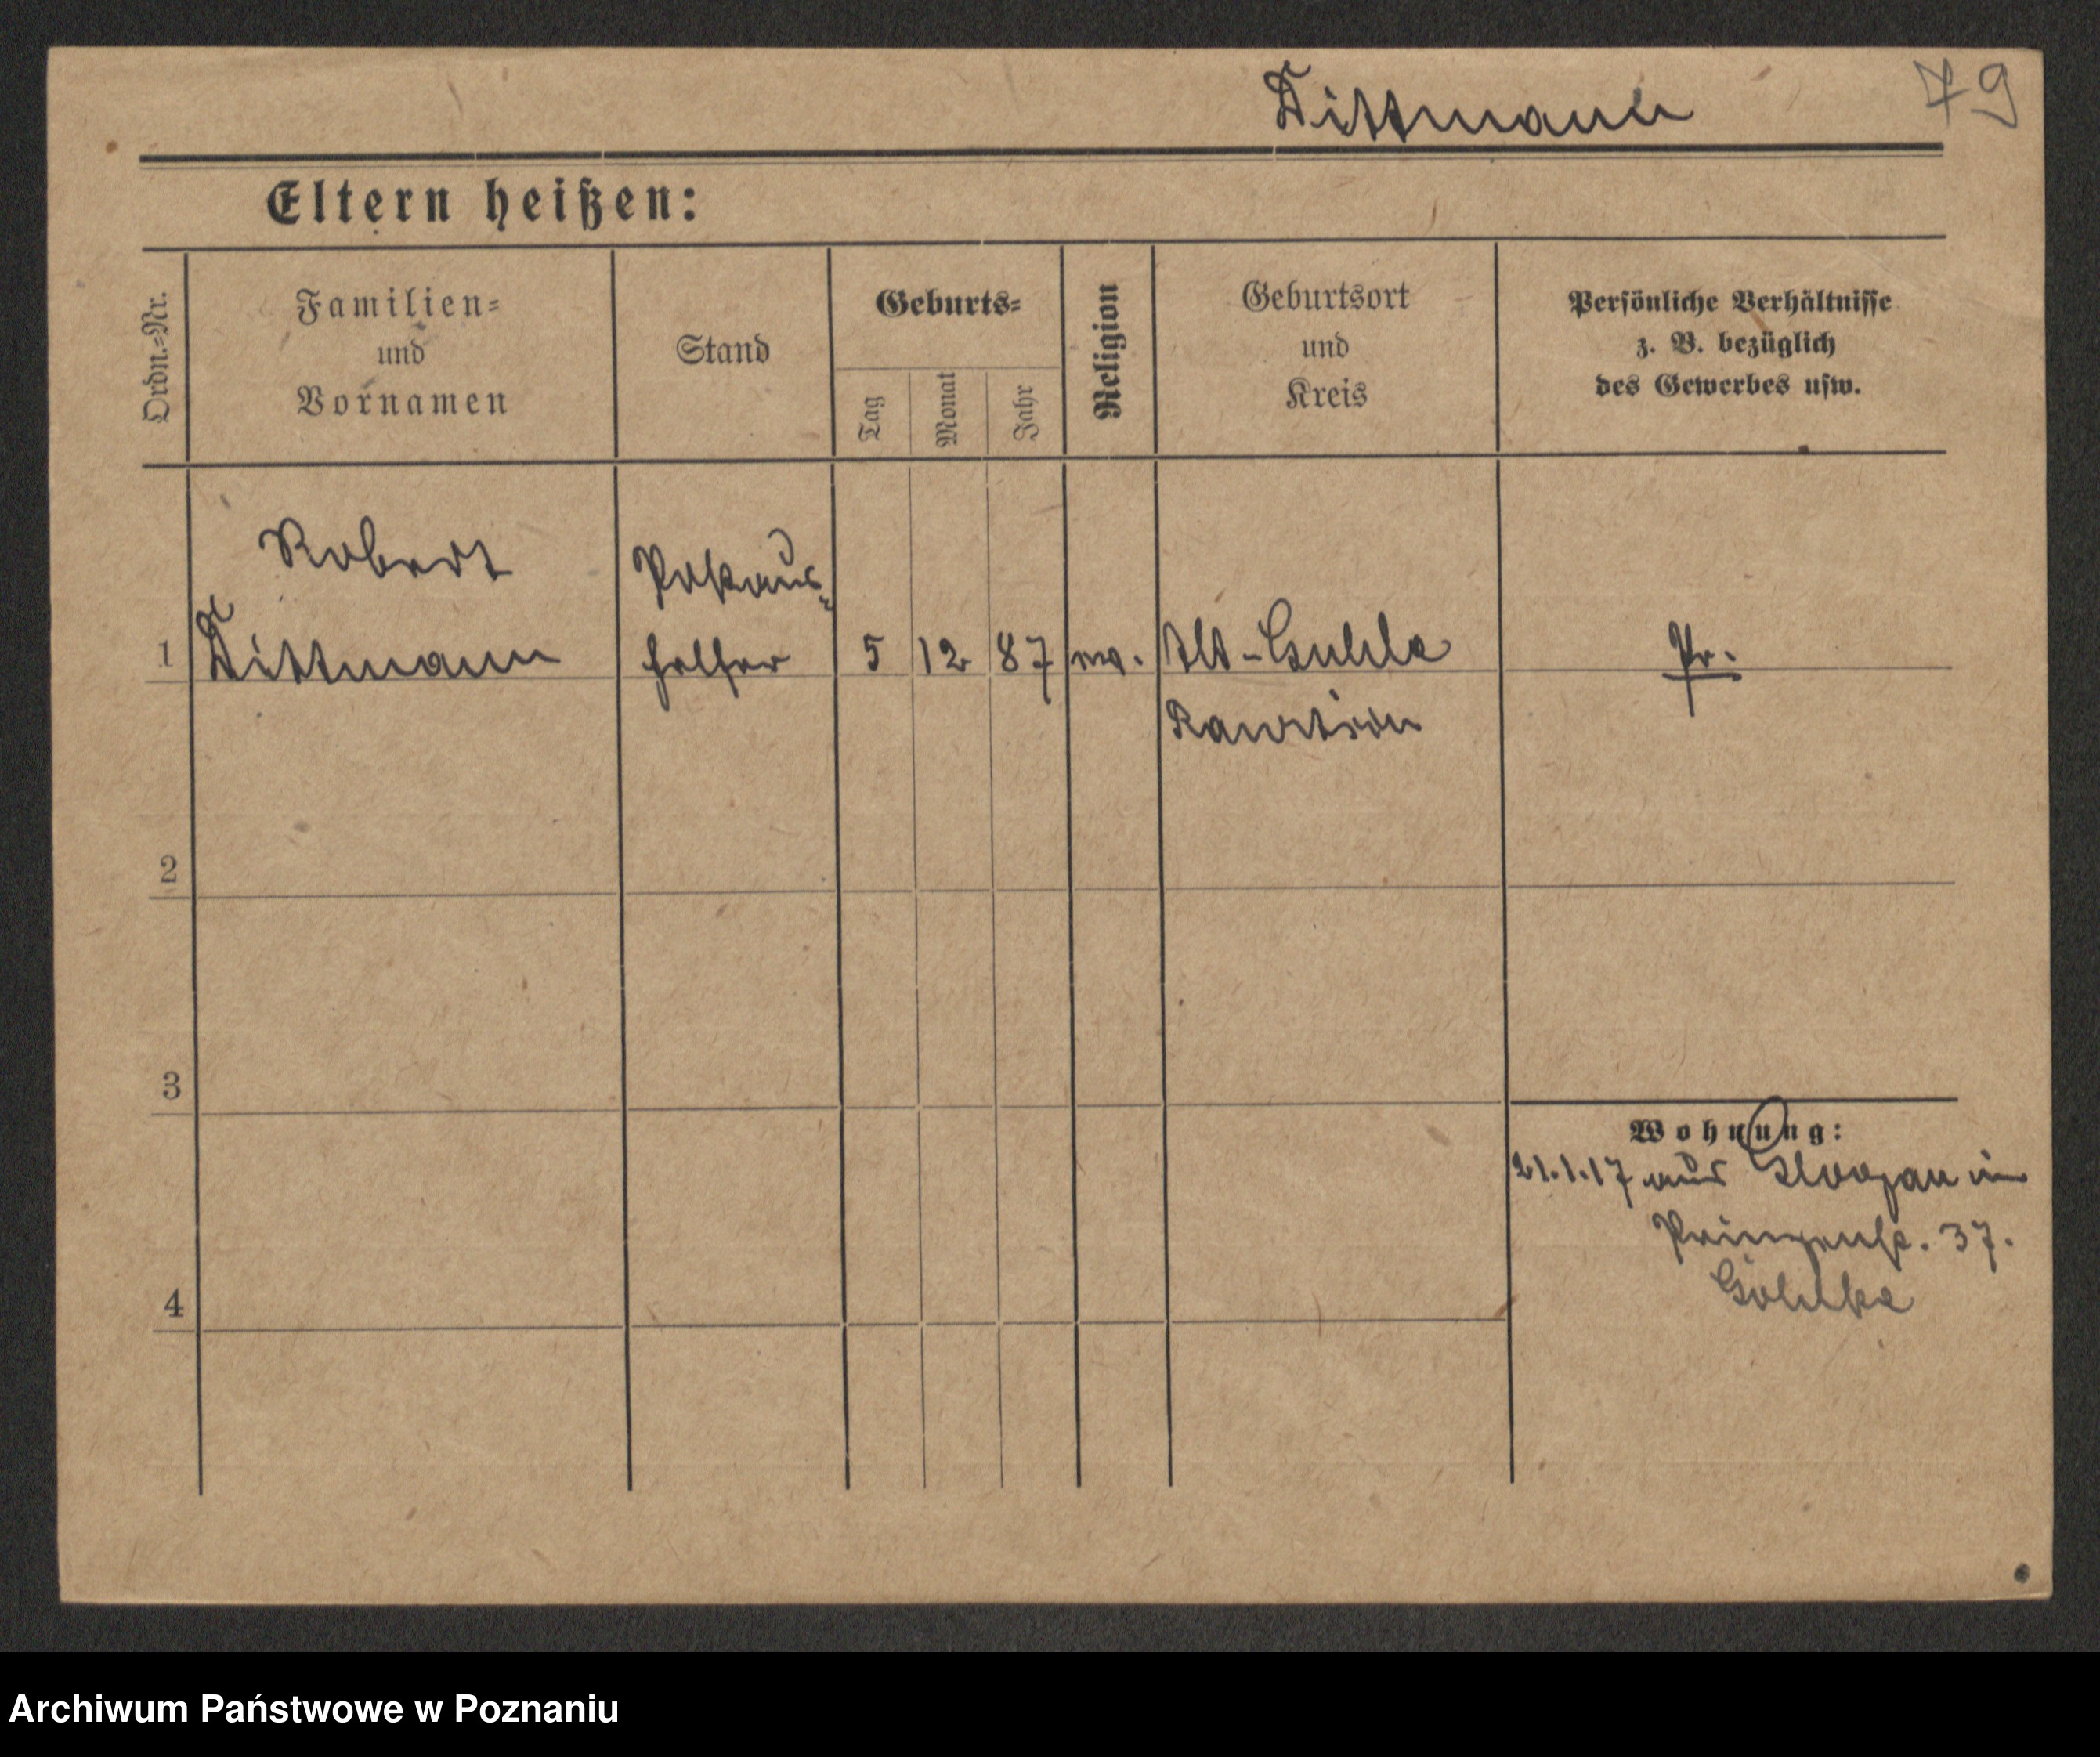 Dittmann 79
Eltern heißen:
Ordn.-Nr.
Familien-
und
Vornamen
Stand
Geburts-
Tag
Monat
Jahr
Religion
Geburtsort
und
Kreis
Persönliche Verhältnisse
z. B. bezüglich
des Gewerbes usw.
Robert
Dittmann
Postaus-
helfer
1
5
12
87
Alt-Guhle
Rawitsch
Pr.
2
3
4
Wohnung:
21.1.17 aus Glogau in
Prinzenstr. 37.
Archiwum Państwowe w Poznaniu